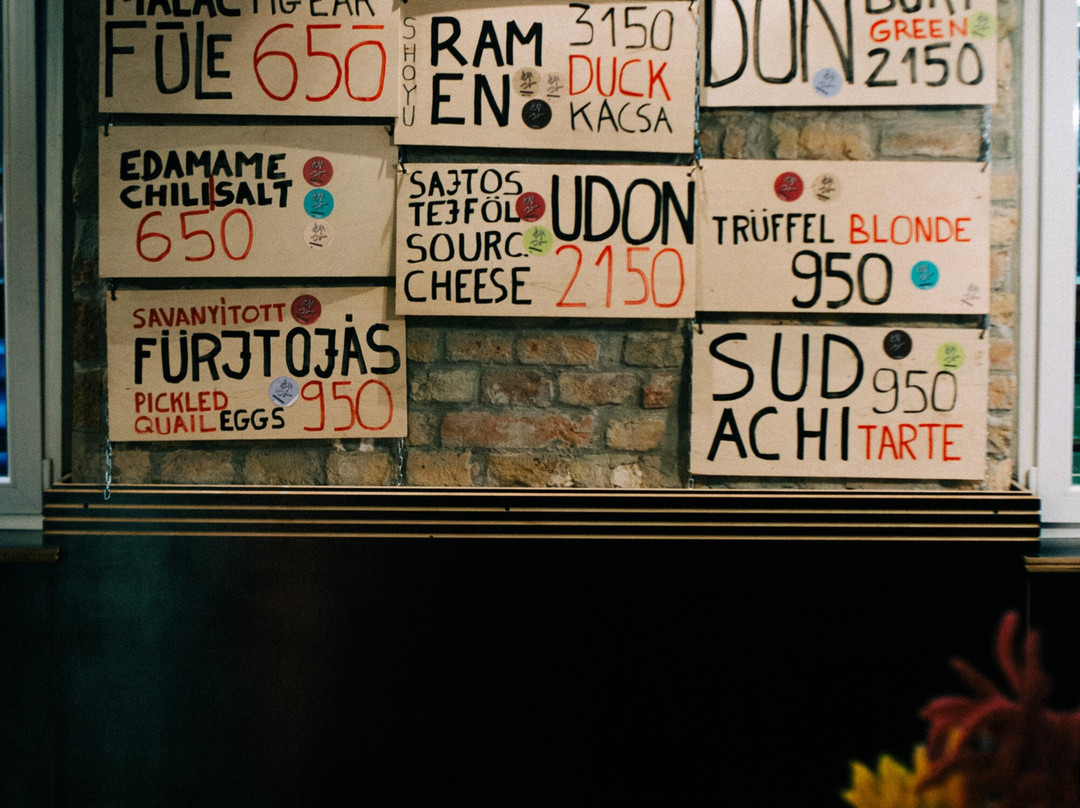 MALAC PIG EAR
FÜLE 650
SHOYU
RAM
EN
3150
DUCK
KACSA
DON
GREEN
2150
EDAMAME
CHILI SALT
650
SAJTOS
TEJFÖL
SOURC.
CHEESE
UDON
2150
TRÜFFEL BLONDE
950
SAVANYÍTOTT
FÜRJTOJÁS
PICKLED
QUAIL EGGS 950
SUD
ACHI
950
TARTE